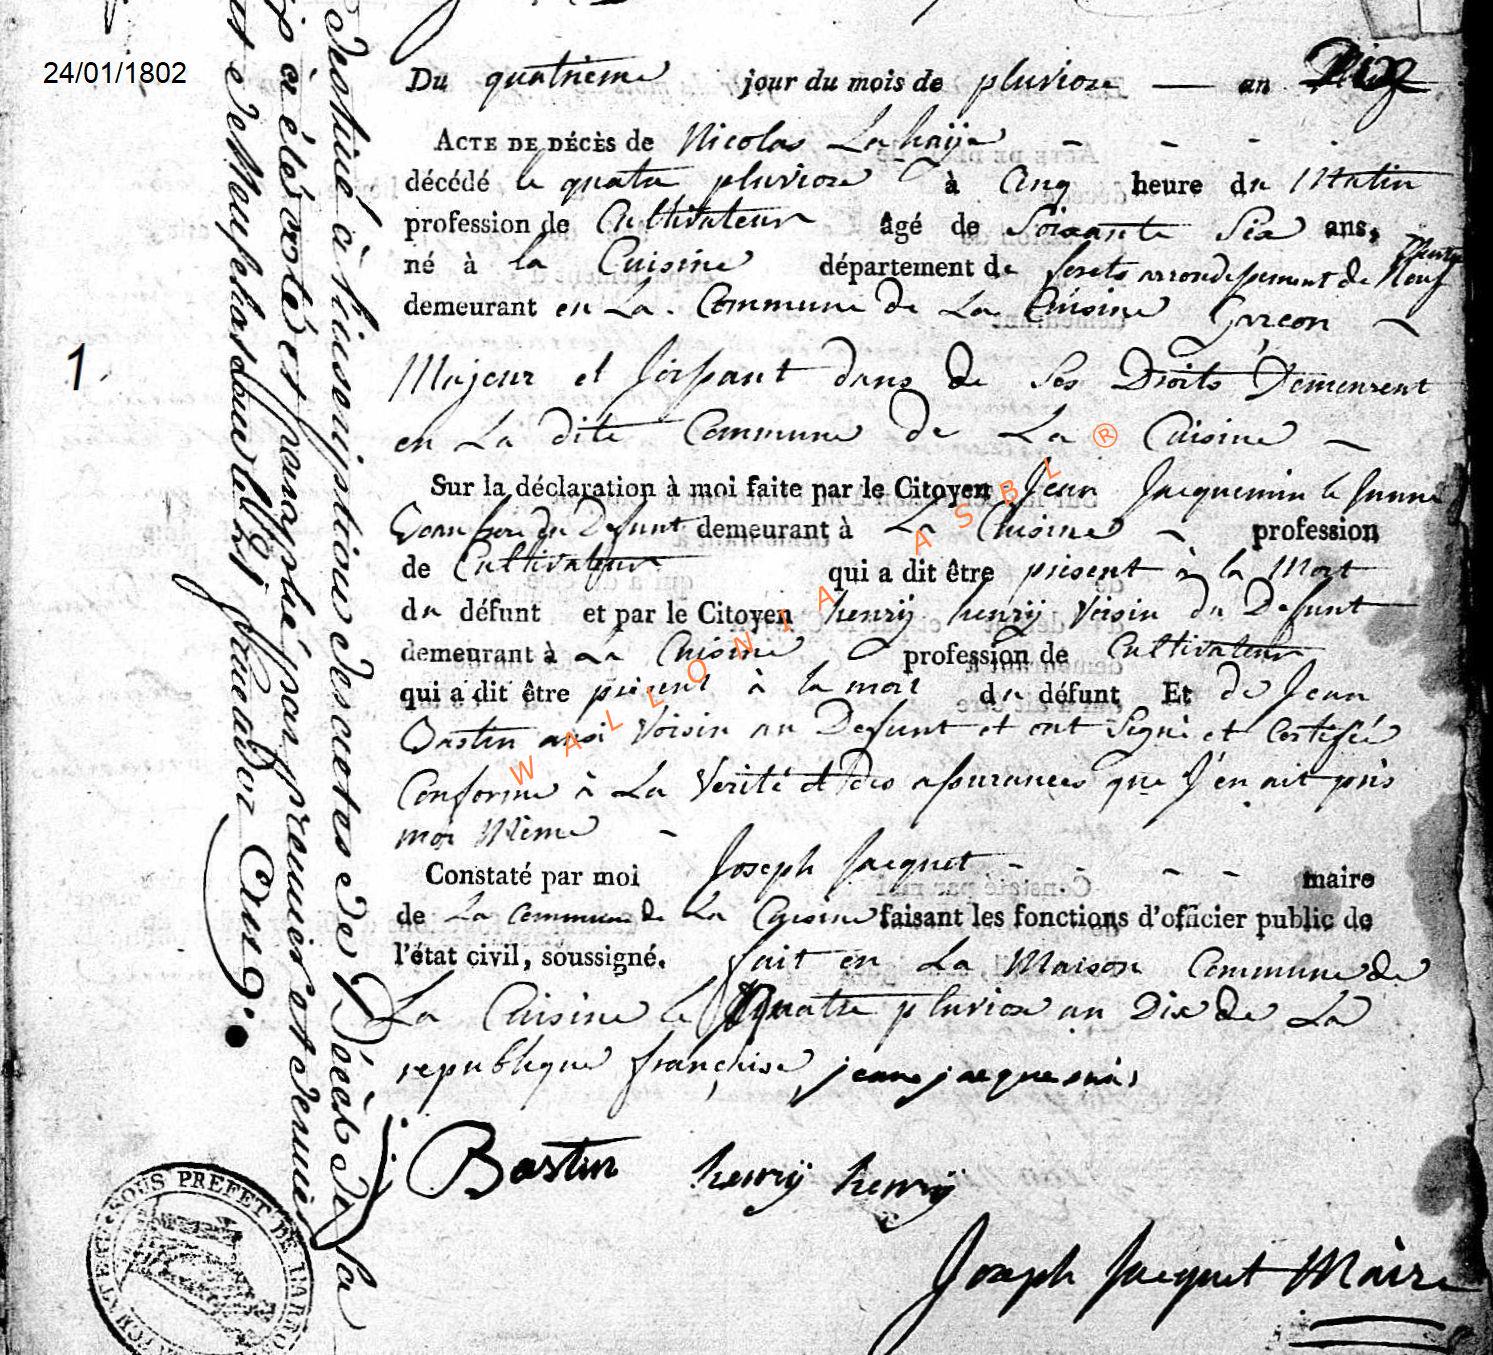 24/01/1802
Du quatrieme jour du mois de pluviose — an Dix
ACTE DE DÉCÈS de Nicolas Lahaÿe - - - -
décédé le quatre pluviose à Cinq heure du Matin
profession de Cultivateur âgé de Soixante Six ans,
né à la Cuisine département de forets arrondissement de Neuf
demeurant en La Commune de La Cuisine Garcon -
1
Majeur et Joissant dans de Ses Droits Demeurent
en La dite Commune de La Cuisine -
Sur la déclaration à moi faite par le Citoyen Jean Jacquemin le Junne
du Defunt demeurant à La Cuisine - profession
de Cultivateur qui a dit être présent à la Mort
du défunt et par le Citoyen henrÿ henrÿ Voisin du Defunt
demeurant à La Cuisine profession de Cultivateur
qui a dit être présent à la mort du défunt Et de Jean
Bastin ausi Voisin au Defunt et ont Signé et Certifié
Conforme à La Verité et des assurances que J'en ait pris
moi Même -
Constaté par moi Joseph Jacquet - - - - maire
de La Commune de La Cuisine faisant les fonctions d'officier public de
l'état civil, soussigné. fait en La Maison Commune de
La Cuisine le Quatre pluviose an Dix de La
republique françaisse jean jacquemin
Bastin henrÿ henrÿ
Joseph Jacquet Maire
destiné à l'inscription des actes de Décès de la
à été coté et paraphé par premier et dernier
et de Monsehos
WALLONIA ASBL ®
SOUS PREFET DE L'ARRO